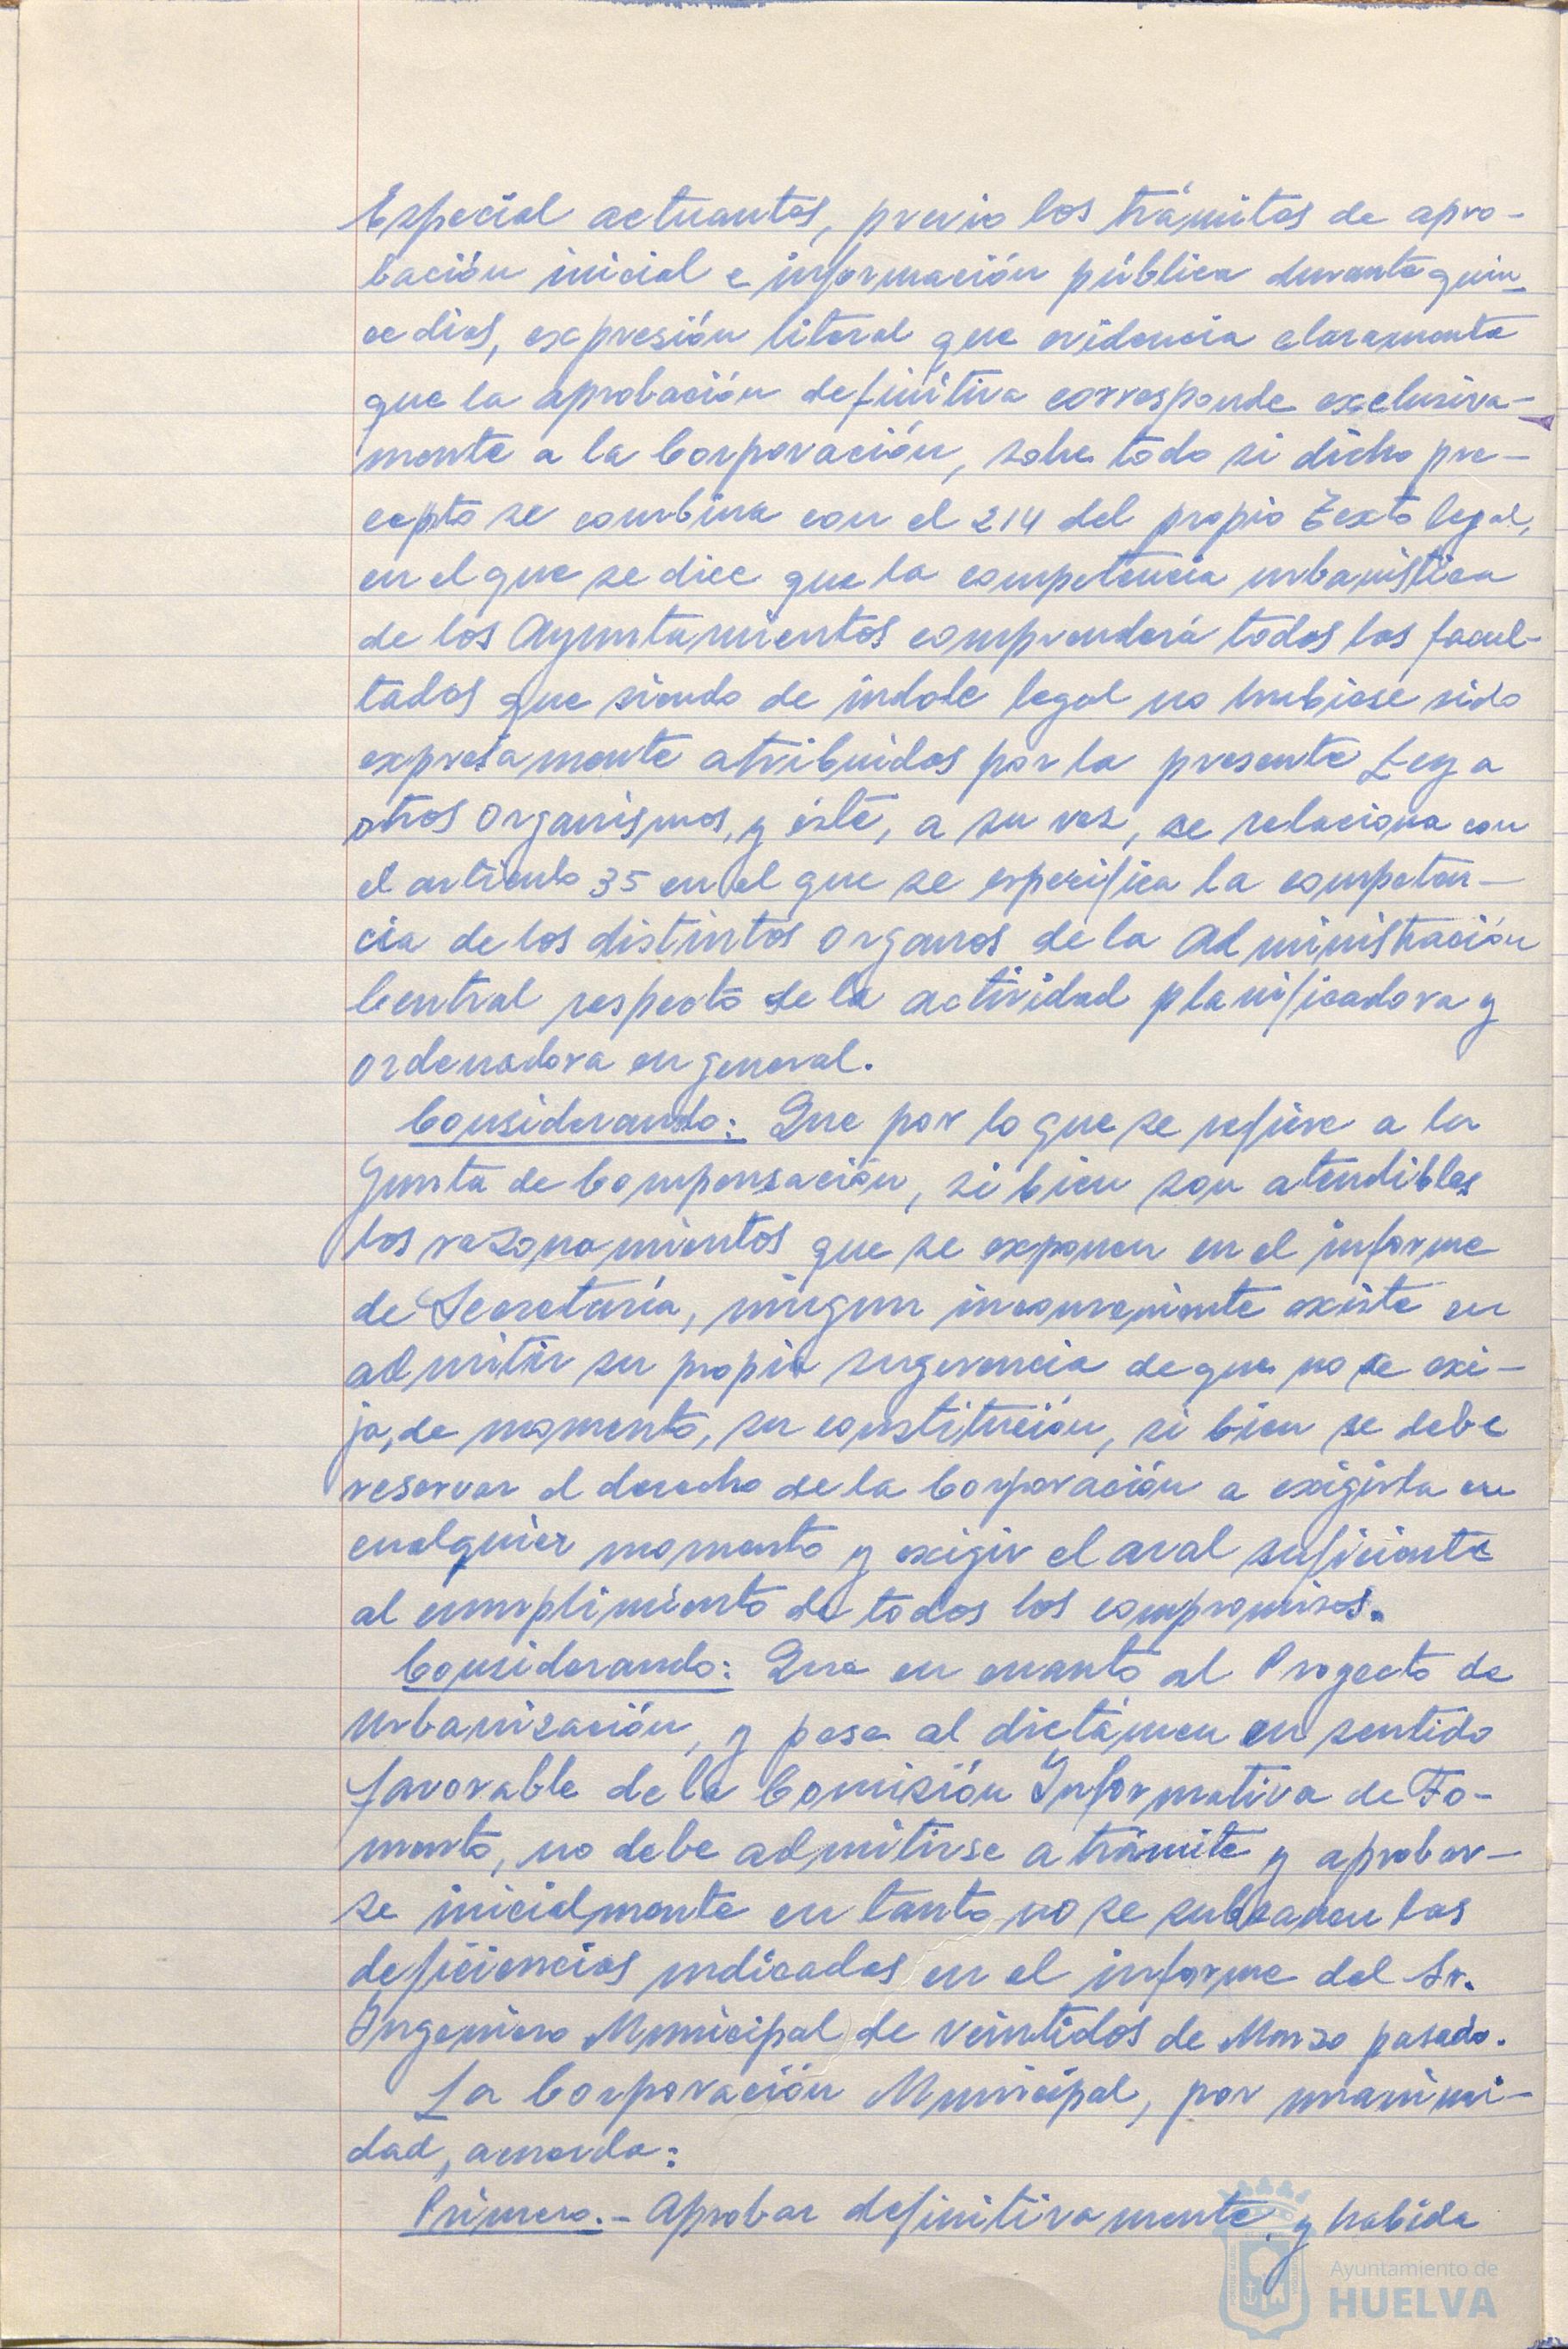 Especial actuantes, previo los trámites de apro-
bación inicial e información pública durante quin-
ce dias, expresión literal que evidencia claramente
que la aprobación definitiva corresponde exclusiva-
mente a la Corporación, sobre todo si dicho pre-
cepto se combina con el 214 del propio Texto legal,
en el que se dice que la competencia urbanística
de los Ayuntamientos comprenderá todas las facul-
tades que siendo de indole legal no hubiese sido
expresamente atribuidas por la presente Ley a
otros Organismos, y éste, a su vez, se relaciona con
el articulo 35 en el que se especifica la competen-
cia de los distintos Organos de la Administración
Central respecto de la actividad planificadora y
ordenadora en general.
Considerando: Que por lo que se refiere a la
Junta de Compensación, si bien son atendibles
los razonamientos que se exponen en el informe
de Secretaría, ningun inconveniente existe en
admitir su propia sugerencia de que no se exi-
ja, de momento, su constitución, si bien se debe
reservar el derecho de la Corporación a exigirla en
cualquier momento y exigir el aval suficiente
al cumplimiento de todos los compromisos.
Considerando: Que en cuanto al Proyecto de
Urbanización, y pese al dictámen en sentido
favorable de la Comisión Informativa de Fo-
mento, no debe admitirse a trámite y aprobar-
se inicialmente en tanto no se subsanen las
deficiencias indicadas en el informe del Sr.
Ingeniero Municipal de veintidos de Marzo pasado.
La Corporación Municipal, por unanimi-
dad, acuerda:
Primero.- Aprobar definitivamente y habida
Ayuntamiento de
HUELVA